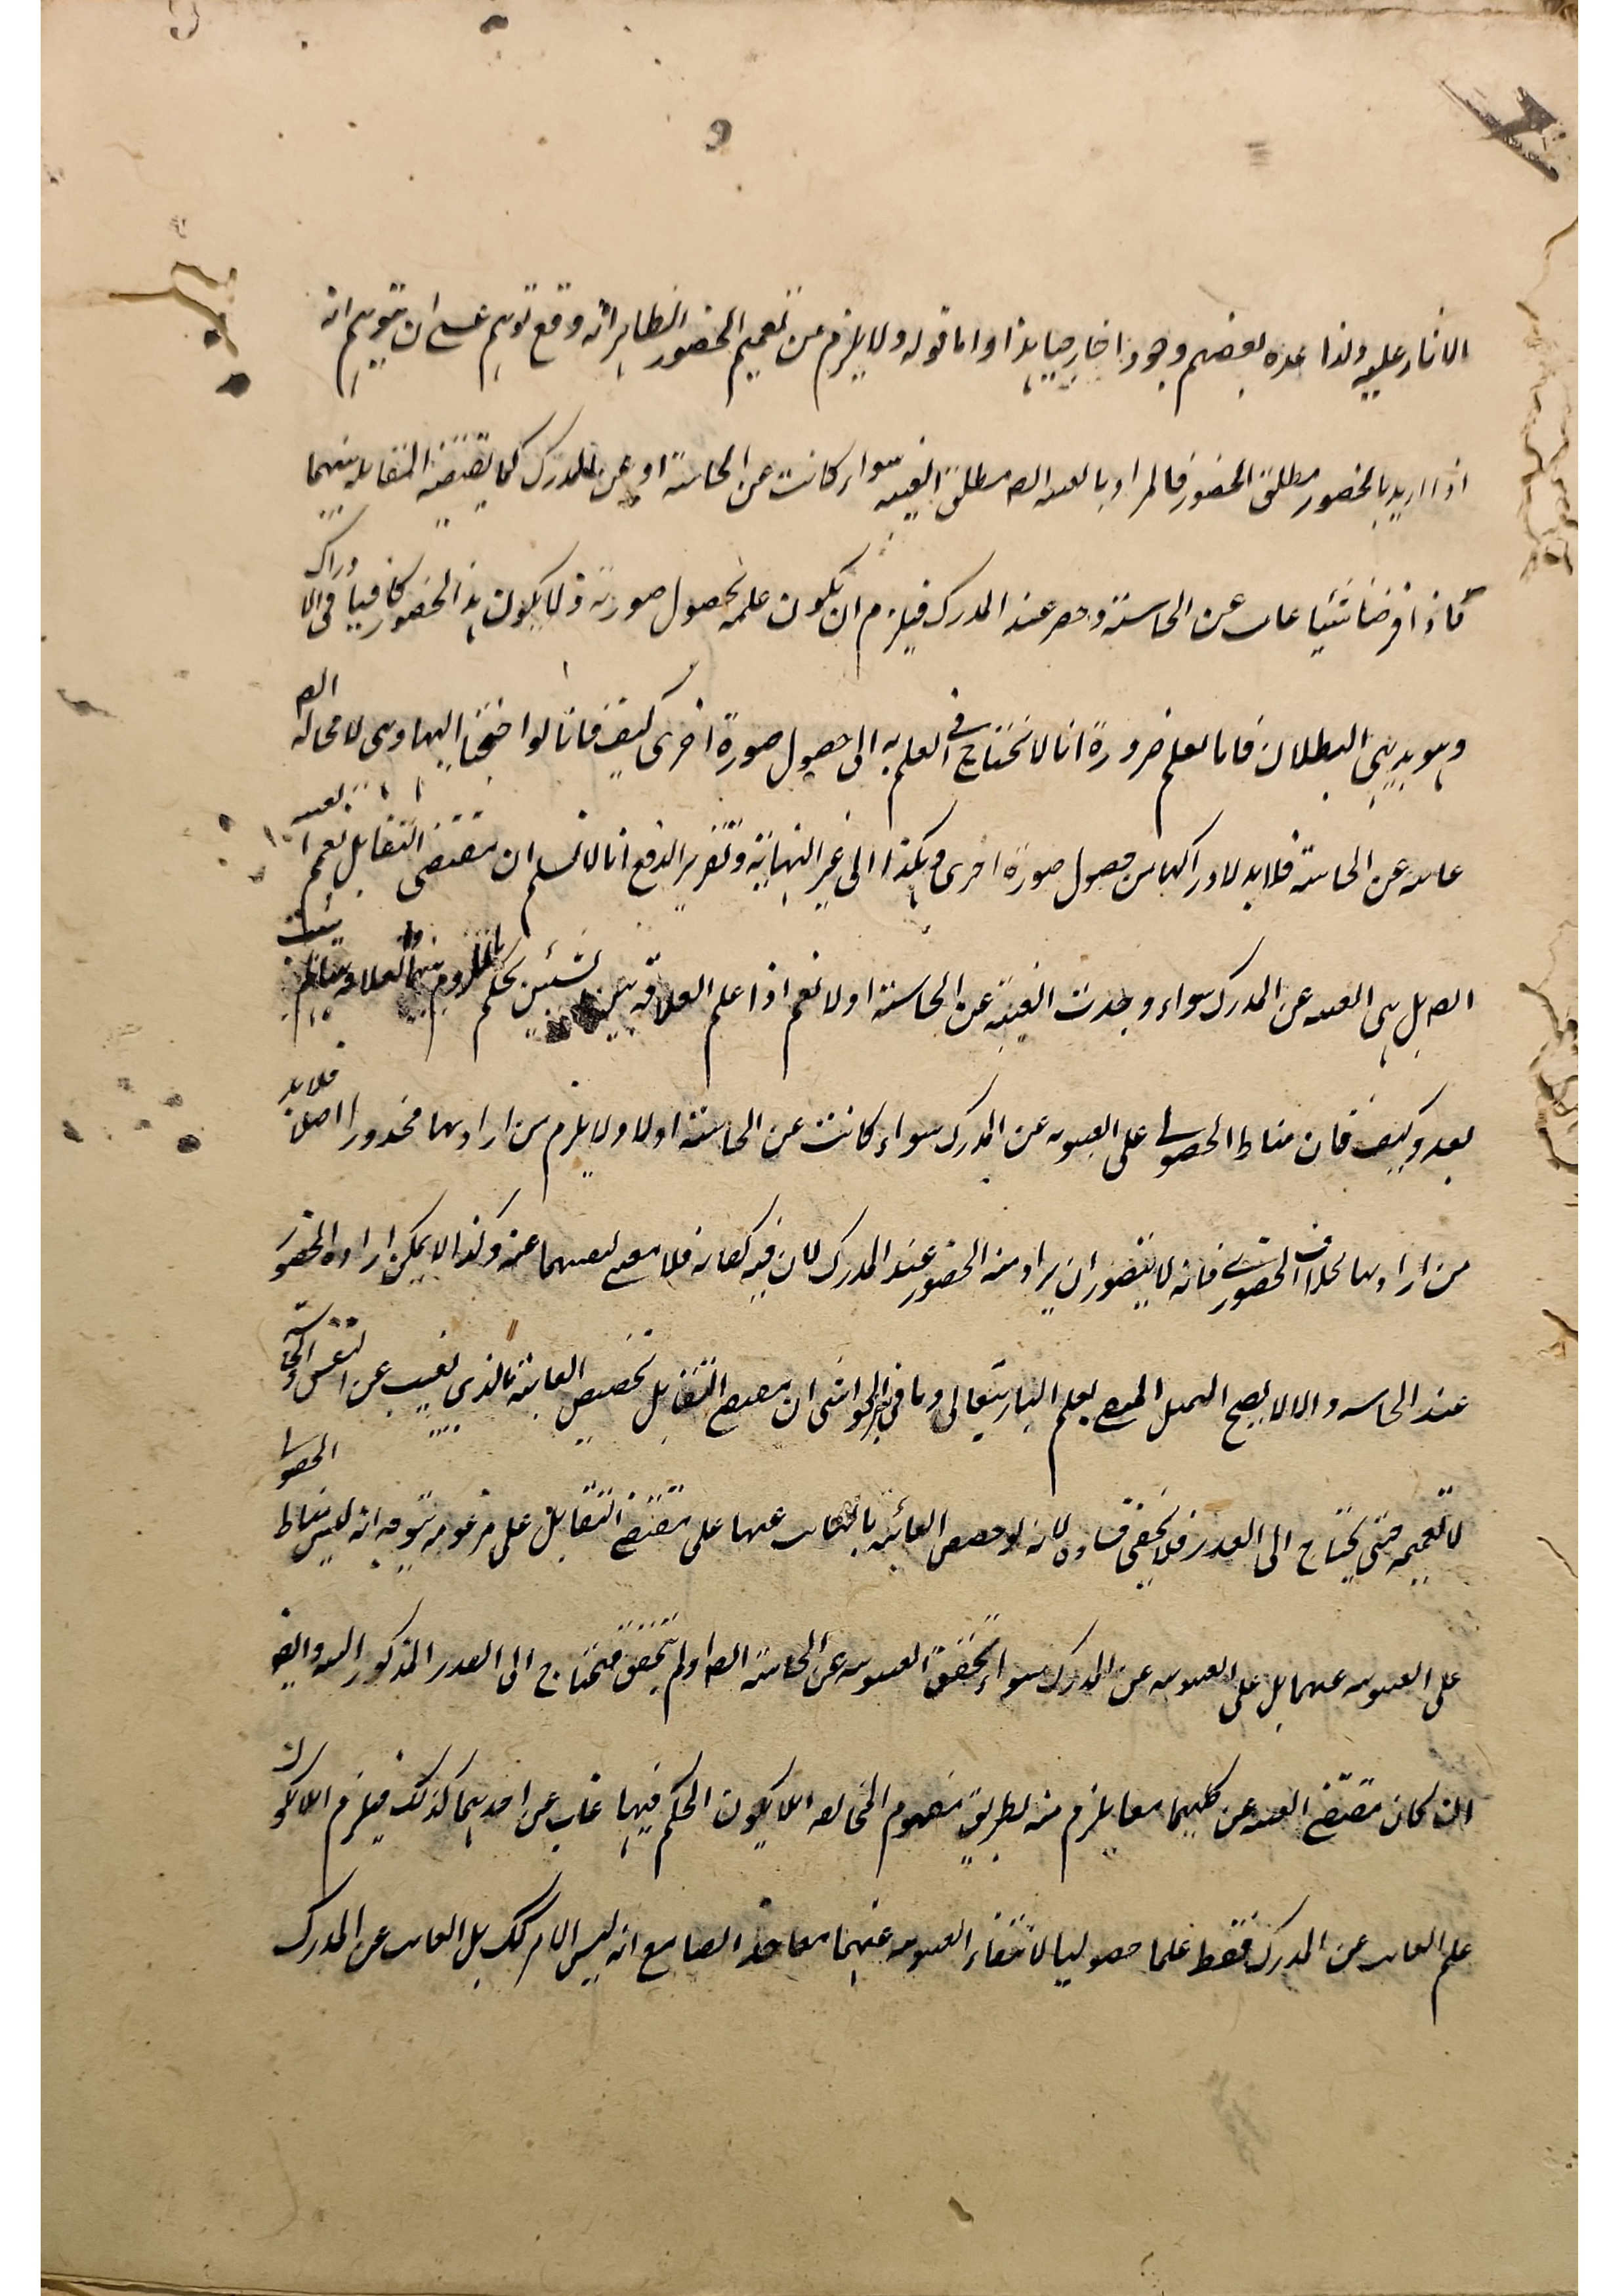 الاثار عليه ولذا عده بعضهم وجودا خارجيا هذا واما قوله ولا يلزم من تعميم الحضور الظاهر انه وقع توهم عسى ان يتوهم انه
اذا اريد بالحضور مطلق الحضور فالمراد بالغيبة ايضا مطلق الغيبة سواء كانت عن الحاسة او عن المدرك كما يقتضيه المقابلة بينهما
فاذا فرضنا شيئا غاب عن الحاسة وحضر عند المدرك فيلزم ان يكون علمه بحصول صورته ولا يكون هذا الحضور كافيا في الادراك
وهو بديهي البطلان فانا نعلم ضرورة انا لا نحتاج في العلم به الى حصول صورة اخرى كيف فانا لو احتجنا اليها وهي لا محالة ايضا
غائبة عن الحاسة فلا بد لادراكها من حصول صورة اخرى وهكذا الى غير النهاية وتقرير الدفع انا لا نسلم ان مقتضى التقابل تعميم الغيبة
ايضا بل هي الغيبة عن المدرك سواء وجدت الغيبة عن الحاسة اولا نعم اذا علم العلاقة بين الشيئين يحكم باللزوم بينهما
بعد وكيف فان مناط الحصولي على الغيبوبة عن المدرك سواء كانت عن الحاسة اولا ولا يلزم من ارادتها محذور اصلا فلا بد
من ارادتها بخلاف الحضوري فانه لا يتصور ان يراد منه الحضور عند المدرك لان فيه كفاية فلا معنى لغيبتها عنه وكذا لا يمكن ارادة الحضور
عند الحاسة والا لا يصح التمثيل بعلم الباري تعالى وما في الحواشي ان مقتضى التقابل تخصيص الغائبة بالذي تغيب عن النفس والحاسة
لا تعميمه حتى يحتاج الى العذر فلا يخفى فساده لانه لو خصص الغائبة بالغائب عنها على مقتضى التقابل على مزعومه يتوجه انه ليس مناط الحصولي
على الغيبوبة عنهما بل على الغيبوبة عن المدرك سواء تحقق الغيبوبة عن الحاسة ايضا او لم يتحقق فيحتاج الى العذر المذكور البتة وايضا
ان كان مقتضى الغيبة عن كليهما معا يلزم منه بطريق مفهوم المخالفة ان لا يكون الحكم فيما غاب عن احدهما كذلك فيلزم ان لا يكون
علم الغائب عن المدرك فقط علما حصوليا لانتفاء الغيبوبة عنهما معا ايضا مع انه ليس الامر كك بل الغائب عن المدرك